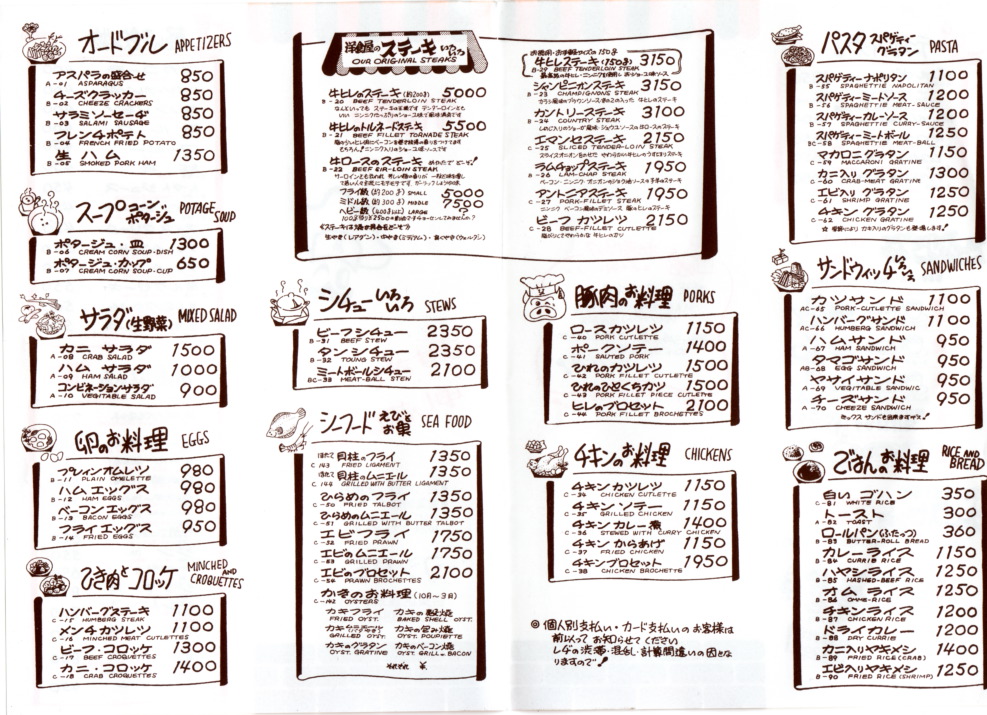 オードブル APPETIZERS
アスパラの盛合せ 850
A-01 ASPARAGUS
チーズクラッカー 850
B-02 CHEEZE CRACKERS
サラミソーセージ 850
B-03 SALAMI SAUSAGE
フレンチポテト 850
B-04 FRENCH FRIED POTATO
生ハム 1350
B-05 SMOKED PORK HAM
スープ コーン ポタージュ POTAGE SOUP
ポタージュ・皿 1300
B-06 CREAM CORN SOUP-DISH
ポタージュ・カップ 650
B-07 CREAM CORN SOUP-CUP
サラダ(生野菜) MIXED SALAD
カニ サラダ 1500
A-08 CRAB SALAD
ハム サラダ 1000
A-09 HAM SALAD
コンビネーションサラダ 900
A-10 VEGITABLE SALAD
卵のお料理 EGGS
プレィンオムレツ 980
B-11 PLAIN OMELETTE
ハムエッグス 980
B-12 HAM EGGS
ベーコンエッグス 980
B-13 BACON EGGS
フライエッグス 950
B-14 FRIED EGGS
ひき肉とコロッケ MINCHED AND CROQUETTES
ハンバーグステーキ 1100
C-15 HUMBERG STEAK
メンチカツレツ 1100
C-16 MINCHED MEAT CUTLETTES
ビーフ・コロッケ 1300
C-17 BEEF CROQUETTES
カニ・コロッケ 1400
C-18 CRAB CROQUETTES
洋食屋のステーキいろいろ
OUR ORIGINAL STEAKS
牛ヒレのステーキ (約200g) 5000
B-20 BEEF TENDERLOIN STEAK
牛ヒレのトルネードステーキ 5500
B-21 BEEF FILLET TORNADE STEAK
牛ロースのステーキ
B-22 BEEF SIR-LOIN STEAK
フライ級 (約200g) SMALL 5000
ミドル級 (約300g) MIDDLE 7500
ヘビー級 (400g以上) LARGE
牛ヒレステーキ (150g) 3150
B-29 BEEF TENDERLOIN STEAK
シャンピニオンステーキ 3150
B-23 CHAMPIGNONS STEAK
カントリーステーキ 3100
B-24 COUNTRY STEAK
エマンセステーキ 2150
C-25 SLICED TENDER-LOIN STEAK
ラムチョップステーキ 1950
B-26 LAM-CHAP STEAK
アントニアステーキ 1950
C-27 PORK-FILLET STEAK
ビーフ カツレツ 2150
C-28 BEEF-FILLET CUTLETTE
シチューいろいろ STEWS
ビーフシチュー 2350
B-31 BEEF STEW
タンシチュー 2350
B-32 TOUNG STEW
ミートボールシチュー 2100
BC-33 MEAT-BALL STEW
シーフード えびとお菓 SEA FOOD
ほたて貝柱のフライ 1350
C-143 FRIED LIGAMENT
ほたて貝柱のムニエール 1350
C-144 GRILLED WITH BUTTER LIGAMENT
ひらめのフライ 1350
C-50 FRIED TALBOT
ひらめのムニエール 1350
C-51 GRILLED WITH BUTTER TALBOT
エビフライ 1750
C-52 FRIED PRAWN
エビのムニエール 1750
C-53 GRILLED PRAWN
エビのブロセット 2100
C-54 PRAWN BROCHETTES
かきのお料理 (10月〜3月)
C-142 OYSTERS
カキフライ カキの殻焼
FRIED OYST. BAKED SHELL OYST.
カキの包み焼
GRILLED OYST. OYST. POUPIETTE
カキのグラタン カキのベーコン焼
OYST. GRATINE OYST. GRILL W. BACON
それぞれ ¥
豚肉のお料理 PORKS
ロースカツレツ 1150
C-40 PORK CUTLETTE
ポークソテー 1400
C-41 SAUTED PORK
ひれのカツレツ 1500
C-42 PORK FILLET CUTLETTE
ひれのひとくちカツ 1500
C-43 PORK FILLET PIECE CUTLETTE
ヒレのブロセット 2100
C-44 PORK FILLET BROCHETTES
チキンのお料理 CHICKENS
チキンカツレツ 1150
C-34 CHICKEN CUTLETTE
チキン・ソテー 1150
C-35 GRILLED CHICKEN
チキン カレー煮 1400
C-36 STEWED WITH CURRY CHICKEN
チキンからあげ 1150
C-37 FRIED CHICKEN
チキンブロセット 1950
C-38 CHICKEN BROCHETTE
◎個人別支払い・カード支払いのお客様は
前以って お知らせください
レヂの渋滞・混乱・計算間違いの因とな
りますので!
パスタ スパゲティー グラタン PASTA
スパゲティーナポリタン 1100
B-55 SPAGHETTIE NAPOLITAN
スパゲティーミートソース 1200
B-56 SPAGHETTIE MEAT-SAUCE
スパゲティーカレーソース 1200
B-57 SPAGHETTIE CURRY-SAUCE
スパゲティーミートボール 1250
BC-58 SPAGHETTIE MEAT-BALL
マカロニグラタン 1150
C-59 MACCARONI GRATINE
カニ入り グラタン 1300
C-60 CRAB-MEAT GRATINE
エビ入り グラタン 1250
C-61 SHRIMP GRATINE
チキン グラタン 1250
C-62 CHICKEN GRATINE
サンドウィッチいろいろ SANDWICHES
カツサンド 1100
AC-65 PORK-CUTLETTE SANDWICH
ハンバーグサンド 1100
AC-66 HUMBERG SANDWICH
ハムサンド 950
A-67 HAM SANDWICH
タマゴサンド 950
AB-68 EGG SANDWICH
ヤサイサンド 950
A-69 VEGITABLE SANDWIC
チーズサンド 950
A-70 CHEEZE SANDWICH
ミックスサンドも出来ますヨ!
ごはんのお料理 RICE AND BREAD
白い ゴハン 350
C-81 WHITE RICE
トースト 300
A-82 TOAST
ロールパン(ふたつ) 360
B-83 BUTTER-ROLL BREAD
カレーライス 1150
B-84 CURRIED RICE
ハヤシライス 1250
B-85 HASHED-BEEF RICE
オムライス 1250
B-86 OMME-RICE
チキンライス 1200
B-87 CHICKEN RICE
ドライカレー 1200
B-88 DRY CURRIE
カニ入りヤキメシ 1400
B-89 FRIED RICE(CRAB)
エビ入りヤキメシ 1250
B-90 FRIED RICE(SHRIMP)